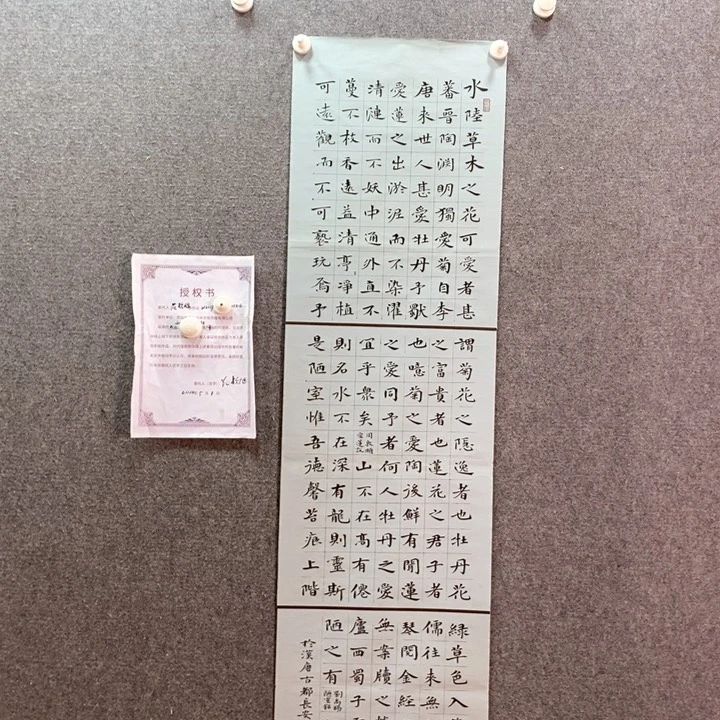 水陸草木之花可愛者甚
蕃晉陶淵明獨愛菊自李
唐來世人甚愛牡丹予獨
愛蓮之出淤泥而不染濯
清漣而不妖中通外直不
蔓不枝香遠益清亭凈植
可遠觀而不可褻玩焉予
謂菊花之隱逸者也牡丹花
之富貴者也蓮花之君子者
也噫菊之愛陶後鮮有聞蓮
之愛同予者何人牡丹之愛
宜乎衆矣周敦頤愛蓮說山不在高有僊
則名水不在深有龍則靈斯
是陋室惟吾德馨苔痕上階
綠草色入
儒往來無
琴閱金經
無案牘之
廬西蜀子
陋之有劉禹錫陋室銘
於漢唐古都長安
授权书